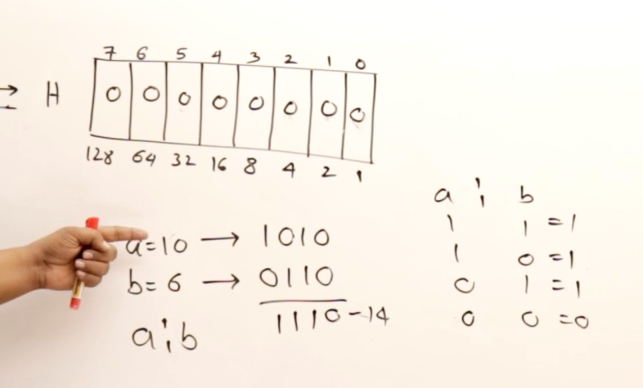 7 6 5 4 3 2 1 0
→ H 0 0 0 0 0 0 0 0
128 64 32 16 8 4 2 1
a=10 → 1010
b=6 → 0110
a¦b 1110-14
a ¦ b
1 1 =1
1 0 =1
0 1 =1
0 0 =0